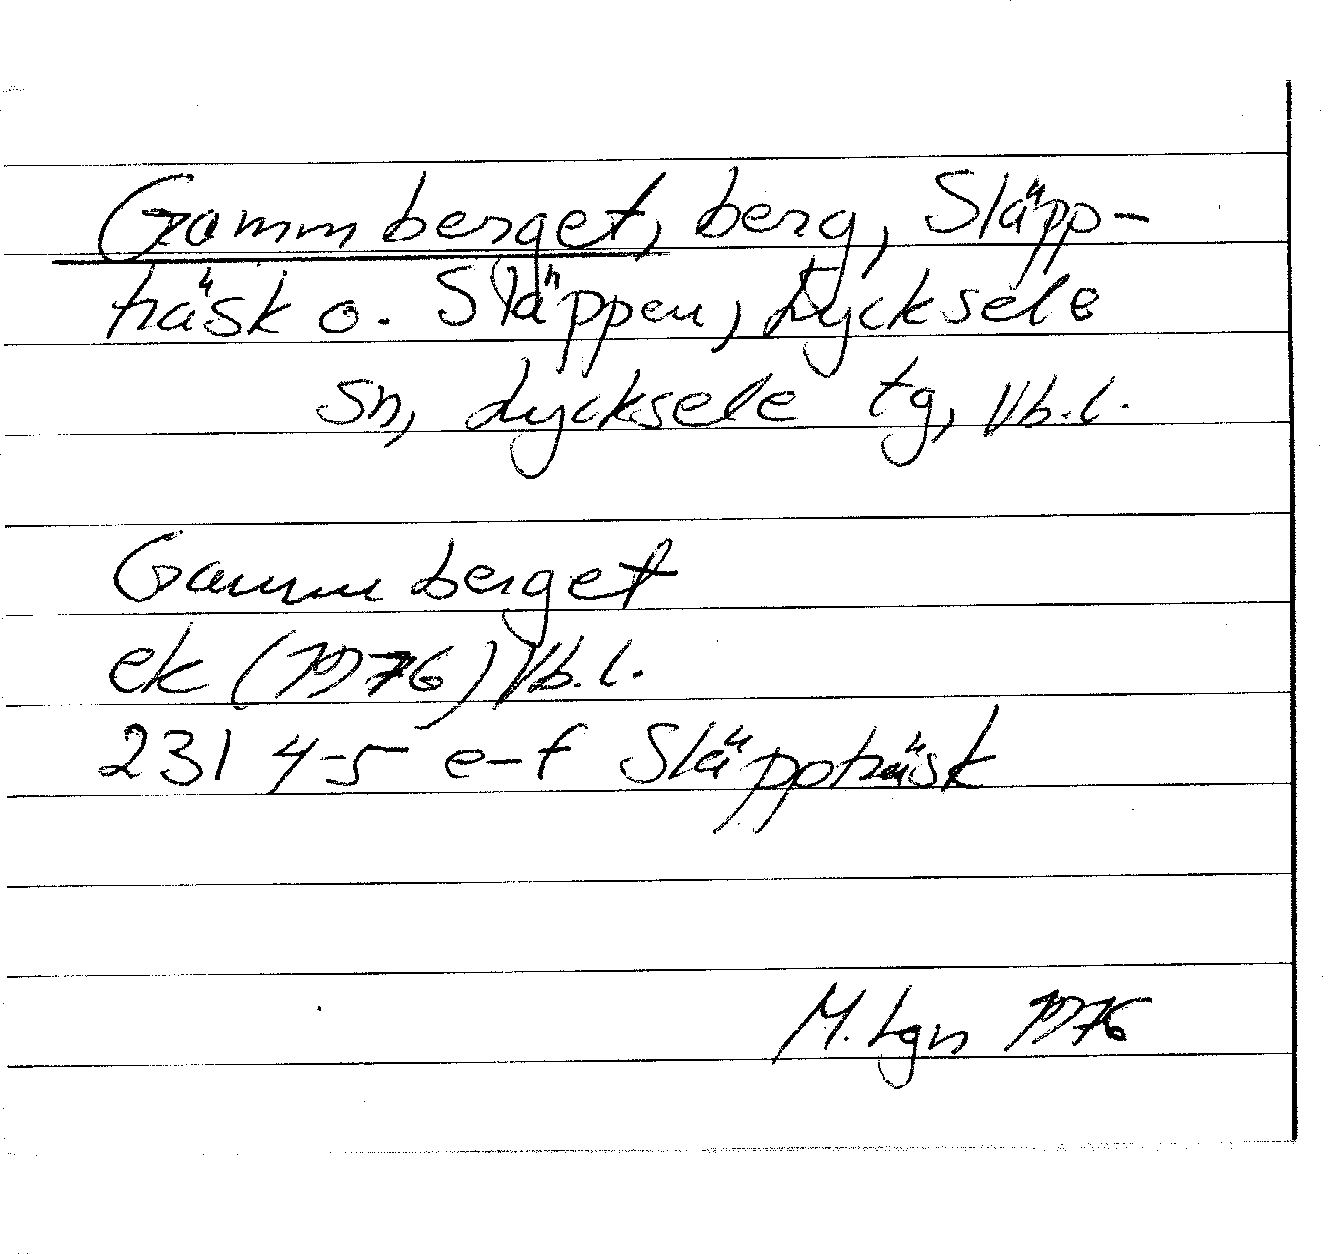 Gammberget, berg, Släpp-
träsk o. Släppen, Lycksele
sn, Lycksele tg, Vb.l.
Gammberget
ek (1976) Vb.l.
231 4-5 e-f Släppträsk
M. Lgn 1976